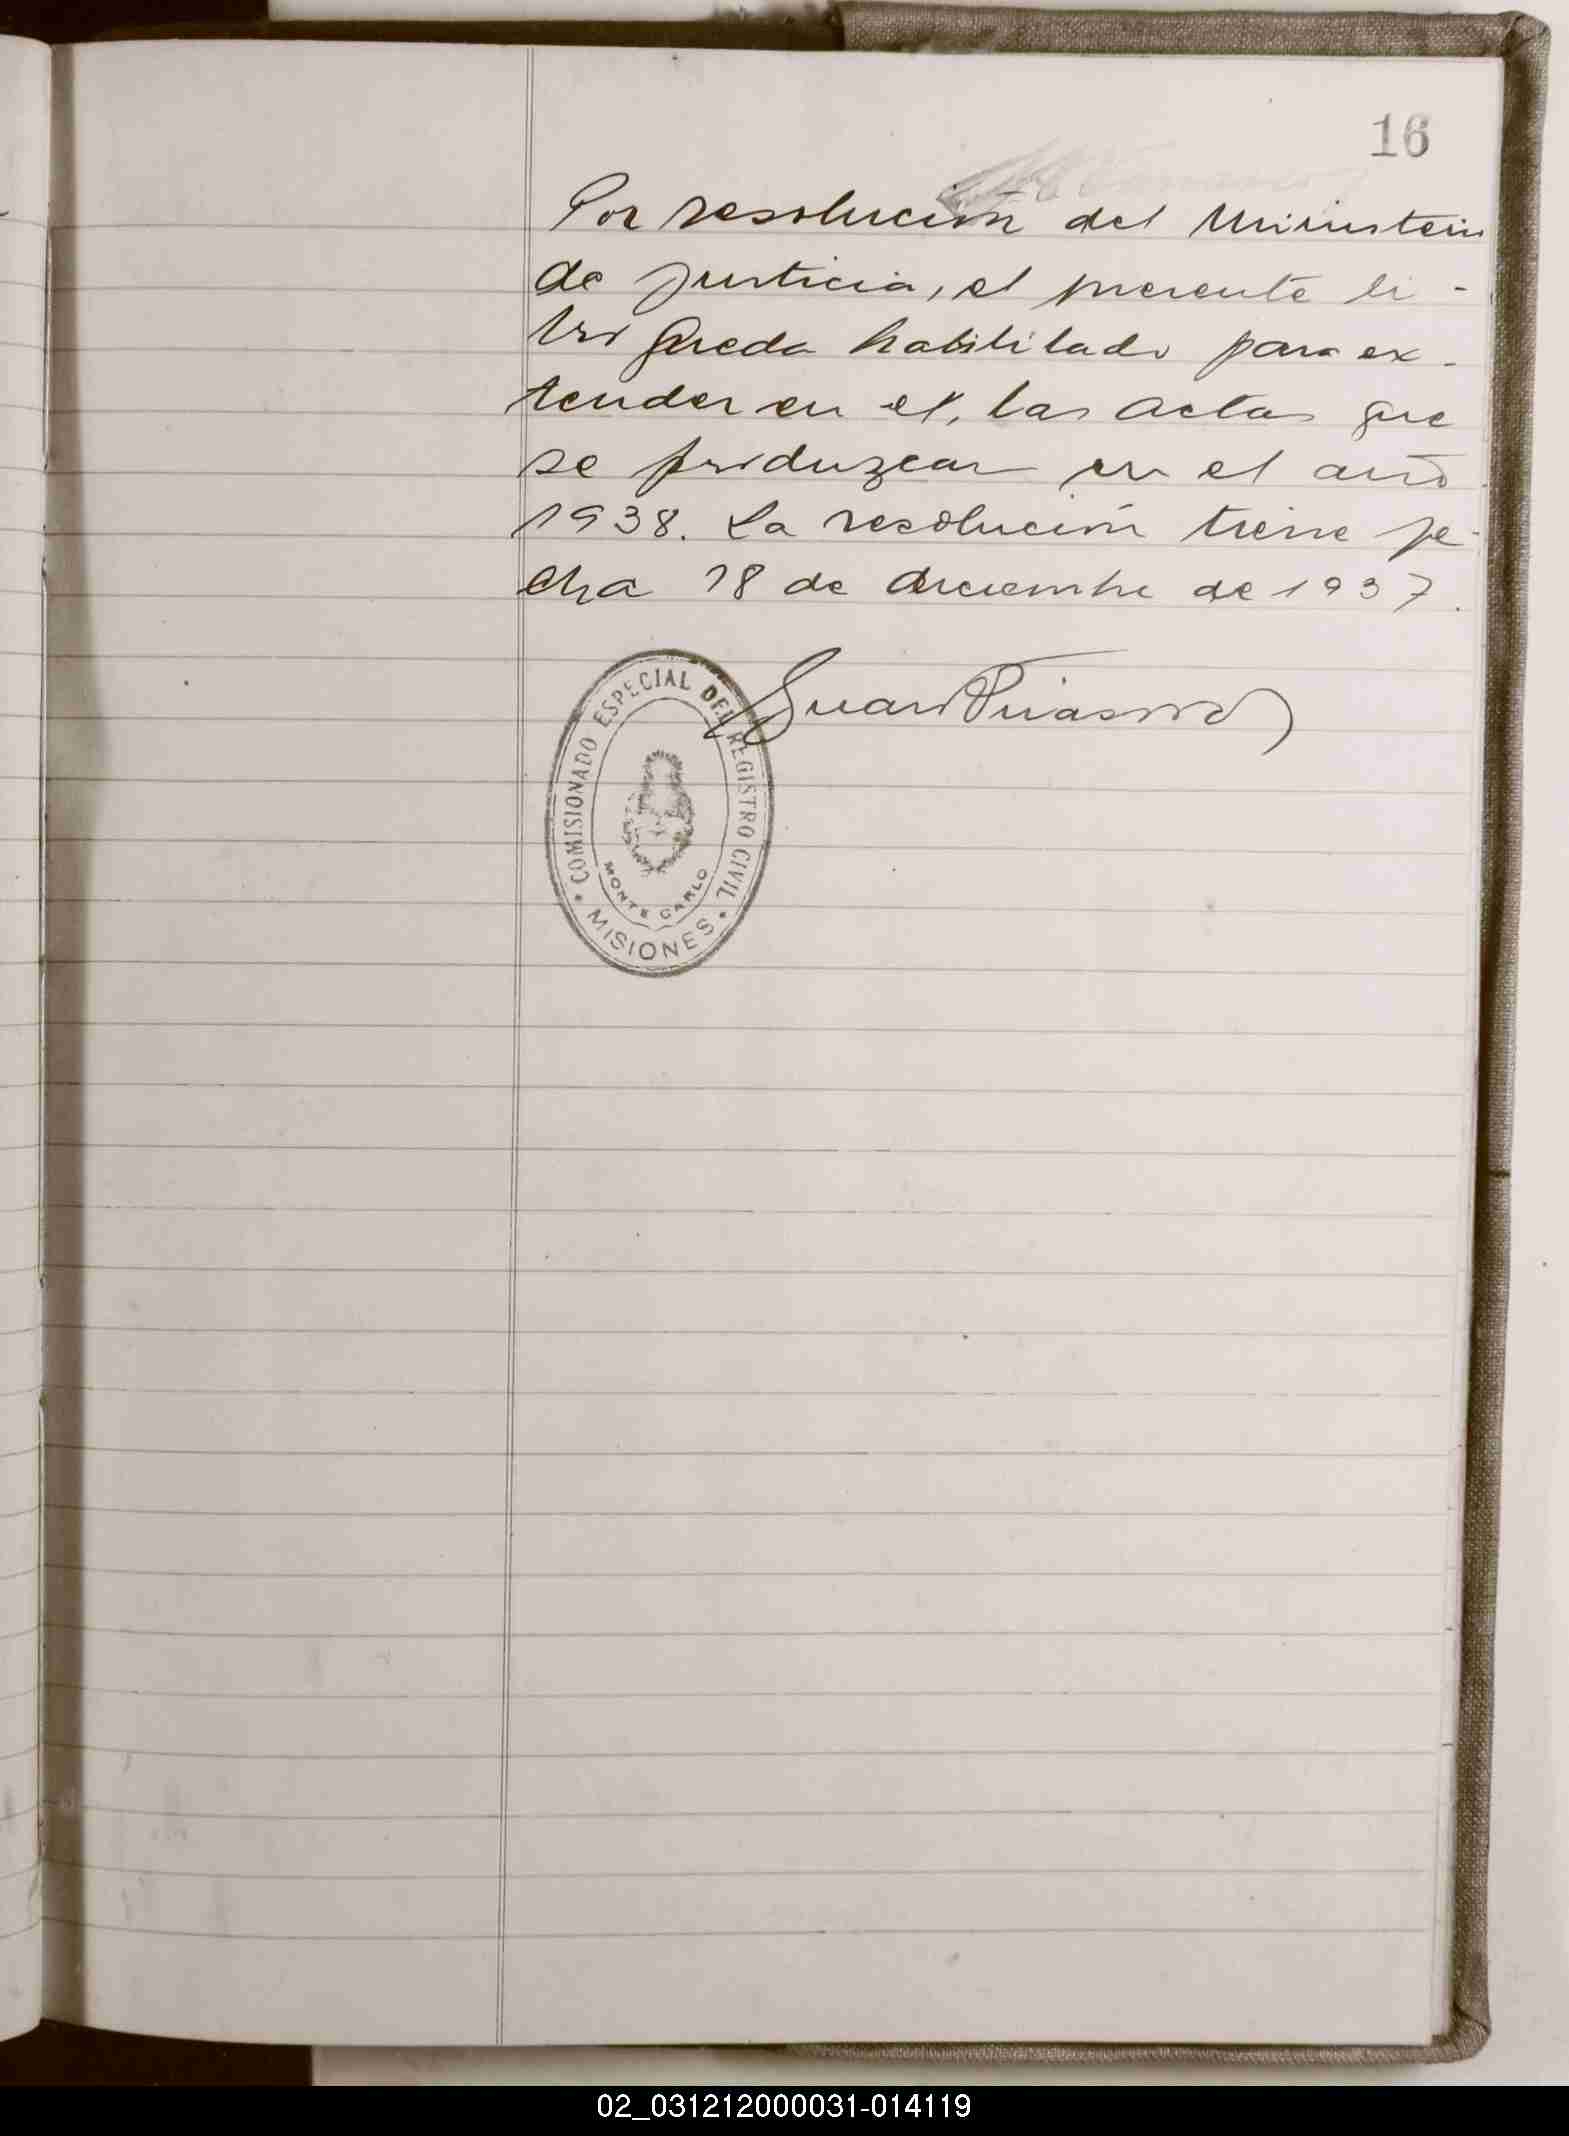 16
Por resolución del Ministerio
de Justicia, el presente li-
bro queda habilitado para ex-
tender en el, las actas que
se produzcan en el año
1938. La resolución tiene fe-
cha 18 de diciembre de 1937.
Juan
COMISIONADO ESPECIAL DEL REGISTRO CIVIL
MONTE CARLO
MISIONES
02_031212000031-014119